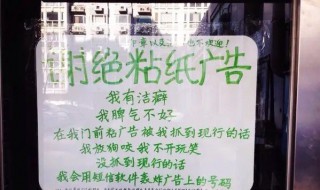 也不欢迎!
谢绝粘纸广告
我有洁癖
我脾气不好
在我门前粘广告被我抓到现行的话
我放狗咬我不开玩笑
没抓到现行的话
我会用短信软件轰炸广告上的号码